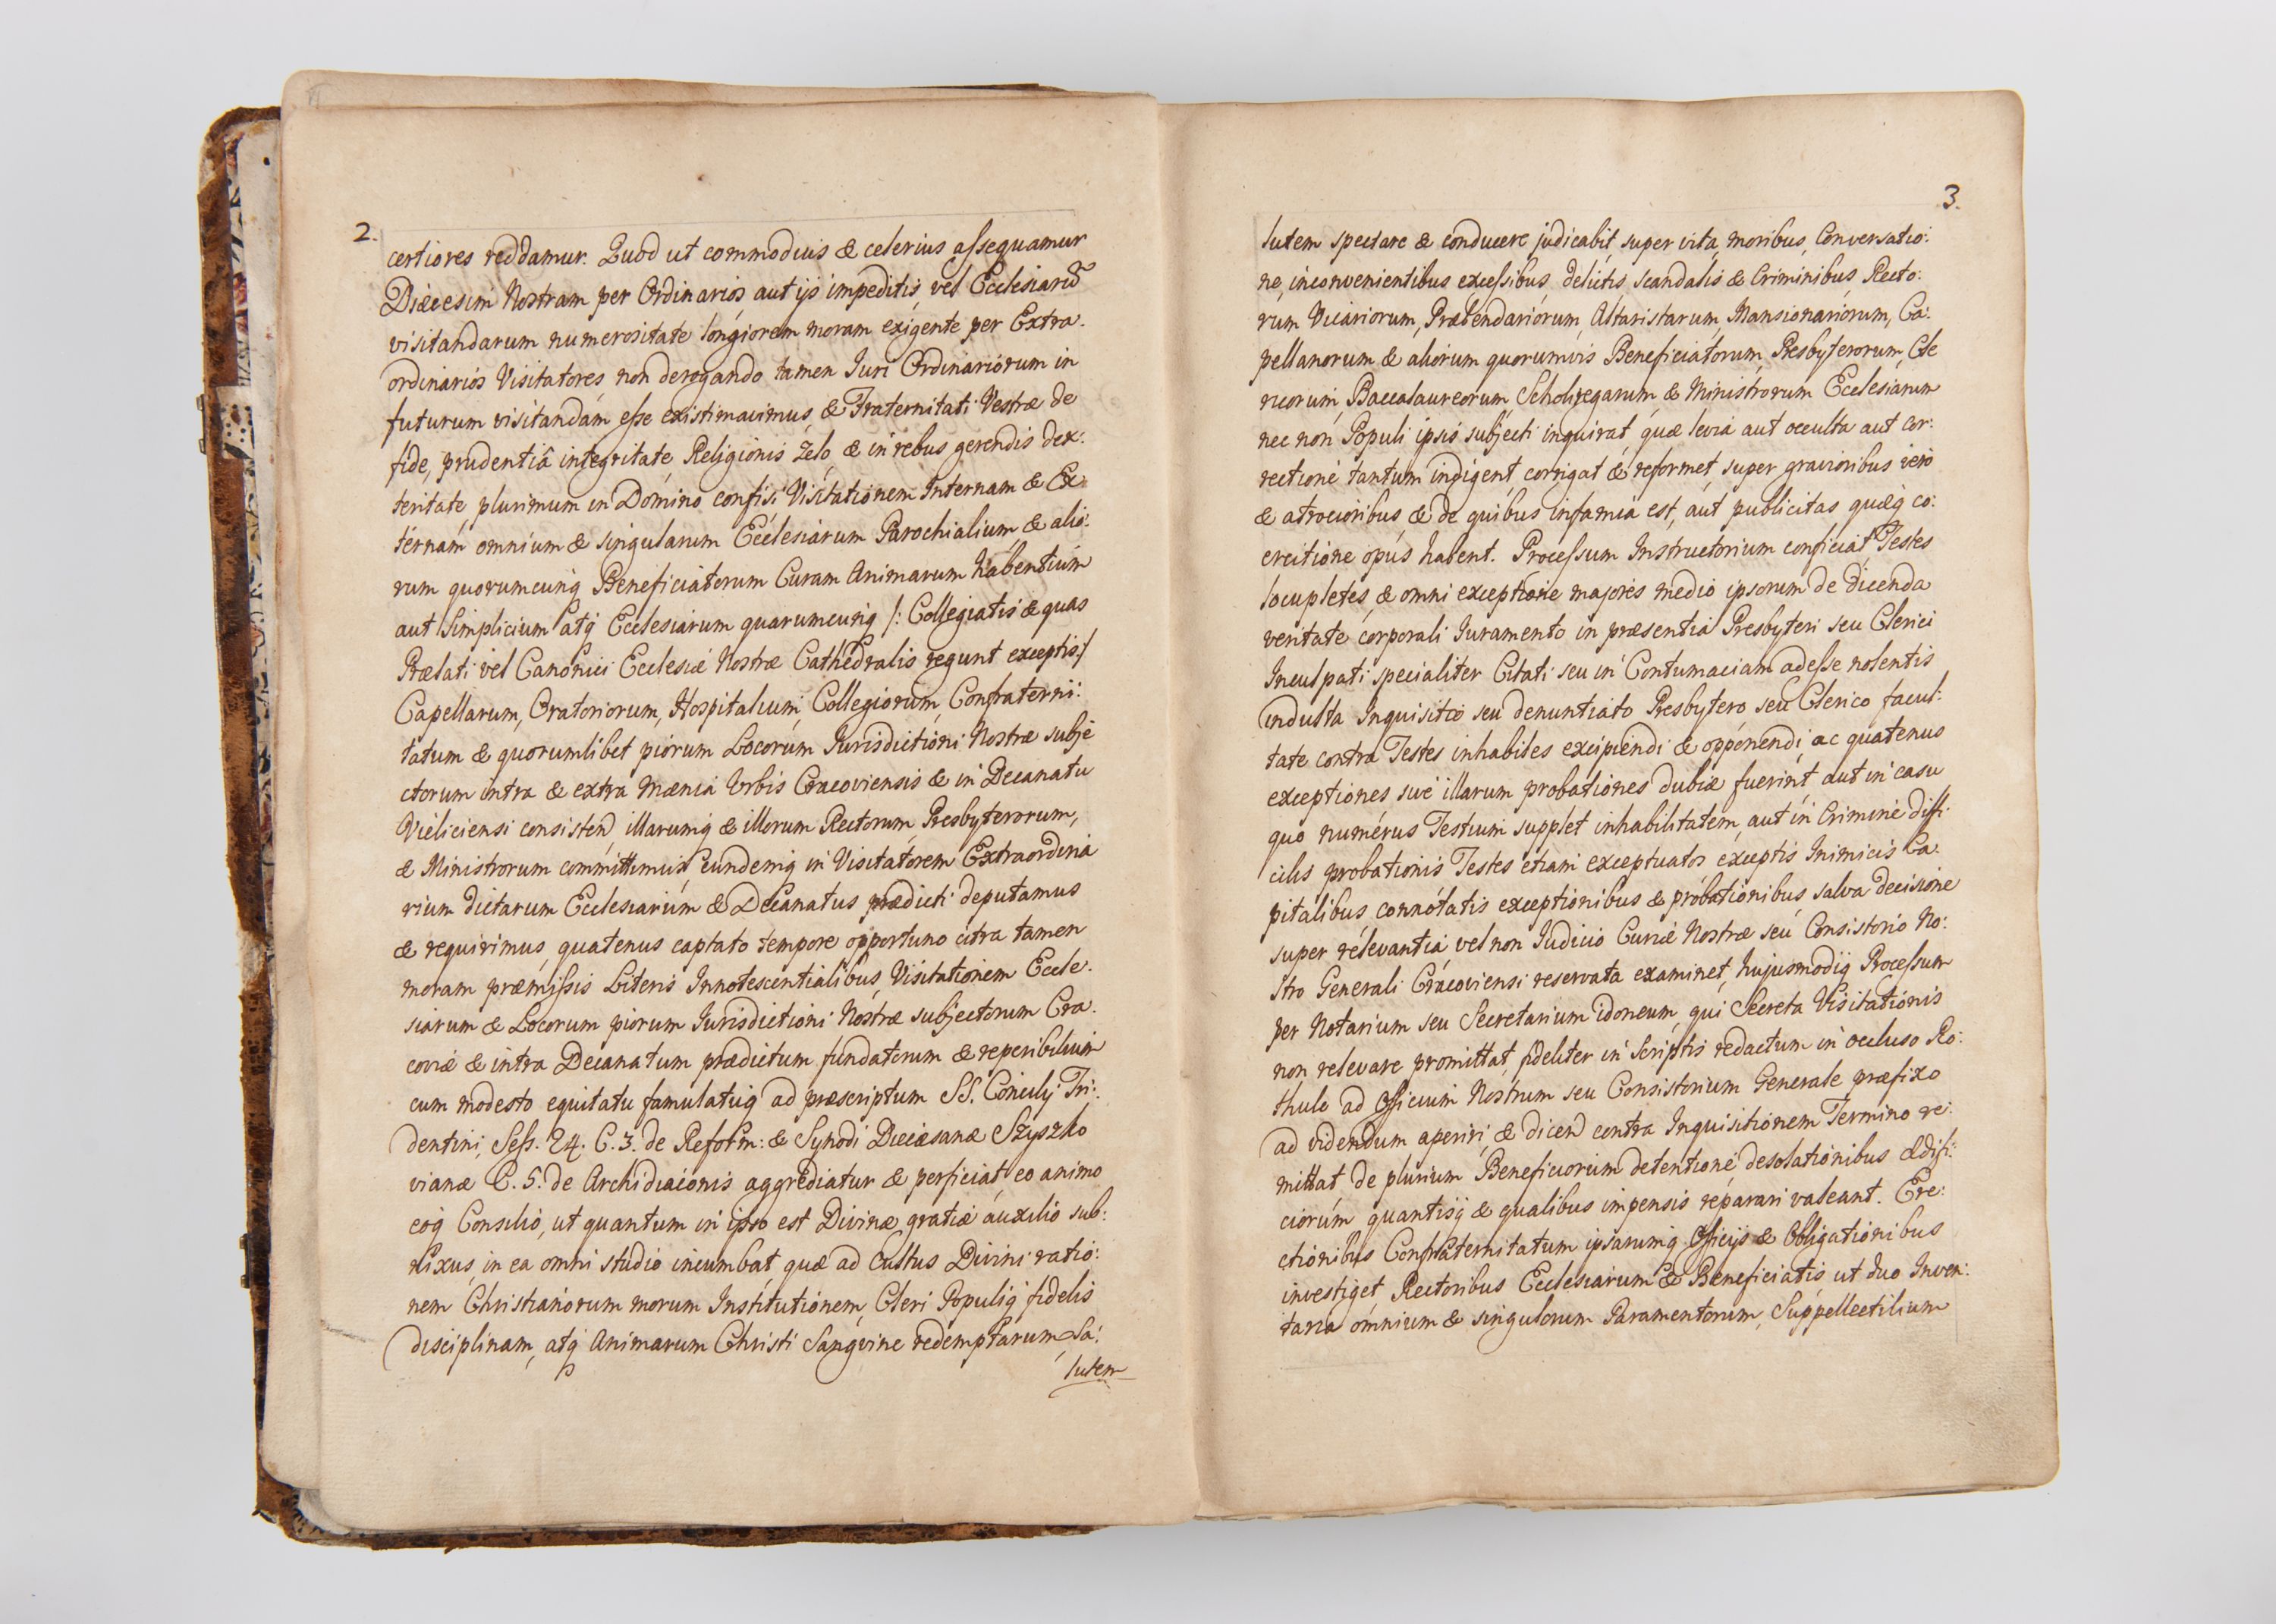 2.
certiores reddamur. Quod ut commodius & celerius assequamur
Diæcesim Nostram per Ordinarios aut ijs impeditis, vel Ecclesiarũ
visitandarum numerositate longiorem moram exigente per Extra.
ordinarios Visitatores, non derogando tamen Iuri Ordinariorum in
futurum visitandam esse existimavimus, & Fraternitati Vestræ de
fide, prudentiâ integritate Religionis zelo & in rebus gerendis dex:
teritate, plurimum in Domino confisi Visitationem Internam & Ex:
ternam omnium & singularum Ecclesiarum Parochialium, & alio:
rum quorumcunq Beneficiatorum Curam Animarum habentium
aut Simplicium atq Ecclesiarum quarumcunq /: Collegiatis & quas
Prælati vel Canonici Ecclesiæ Nostræ Cathedralis regunt exceptis:/
Capellarum, Oratoriorum, Hospitalium, Collegiorum, Confraterni:
tatum & quorumlibet piorum Locorum Iurisdictioni Nostræ subje
ctorum intra & extra Mænia Urbis Cracoviensis & in Decanatu
Vieliciensi consisten, illarumq & illorum Rectorum Presbyterorum,
& Ministrorum committimus, eundemq in Visitatorem Extraordina
rium dictarum Ecclesiarum & Decanatus prædicti deputamus
& requirimus, quatenus captato tempore opportuno citra tamen
moram præmissis Literis Innotescentialibus, Visitationem Eccle.
siarum & Locorum piorum Iurisdictioni Nostræ subjectorum Cra.
coviæ & intra Decanatum prædictum fundatorum & reperibilium
cum modesto equitatu famulatuq ad præscriptum SS. Concilij Tri:
dentini, Sess. 24. C. 3. de Reform: & Synodi Diæcesanæ Szyszko
vianæ C. 5. de Archidiaconis aggrediatur & perficiat eo animo
eoq Consilio, ut quantum in ipso est Divinæ gratiæ auxilio sub:
nixus, in ea omni studio incumbat quæ ad Cultus Divini ratio:
nem Christianorum morum Institutionem, Cleri Populiq fidelis
disciplinam, atq Animarum Christi Sangvine redemptarum Sa:
lutem
3.
lutem spectare & conducere judicabit, super vita, moribus, Conversatio:
ne, inconvenientibus excessibus, delictis scandalis & Criminibus Recto:
rum Vicariorum, Præbendariorum, Altaristarum, Mansionariorum, Ca:
pellanorum & aliorum quorumvis Beneficiatorum, Presbyterorum, Cle
ricorum, Baccalaureorum, Scholiregarum, & Ministrorum Ecclesiarum
nec non Populi ipsis subjecti inquirat, quæ levia aut occulta aut cor:
rectione tantum indigent, corrigat & reformet, super gravioribus vero
& atrocioribus, & de quibus infamia est, aut publicitas quæq co:
ercitione opus habent. Processum Instructorium conficiat, Testes
locupletes, & omni exceptione majores medio ipsorum de dicenda
veritate corporali Iuramento in præsentia Presbyteri seu Clerici
Inculpati specialiter Citati seu in Contumaciam adesse nolentis
indulta Inquisito seu denuntiato Presbytero seu Clerico facul:
tate contra Testes inhabiles excipiendi & opponendi, ac quatenus
exceptiones sive illarum probationes dubiæ fuerint, aut in casu
quo numerus Testium supplet inhabilitatem, aut in Crimine diffi:
cilis probationis Testes etiam exceptuatos exceptis Inimicis Ca:
pitalibus connotatis exceptionibus & probationibus salva decisione
super relevantia, vel non Iudicio Curiæ Nostræ seu Consistorio No:
stro Generali Cracoviensi reservata examinet, hujusmodiq Processum
per Notarium seu Secretarium idoneum, qui Secreta Visitationis
non relevare promittat, fideliter in Scriptis redactum in occluso Ro:
thulo ad Officium Nostrum seu Consistorium Generale præfixo
ad videndum aperiri, & dicen contra Inquisitionem Termino re:
mittat de plurium Beneficiorum detentione, desolationibus ædifi:
ciorum quantisq & qualibus impensis reparari valeant. Ere:
ctionibus Confraternitatum ipsarumq Officijs & Obligationibus
investiget Rectoribus Ecclesiarum & Beneficiatis, ut duo Inven:
taria omnium & singulorum Paramentorum, Suppellectilium